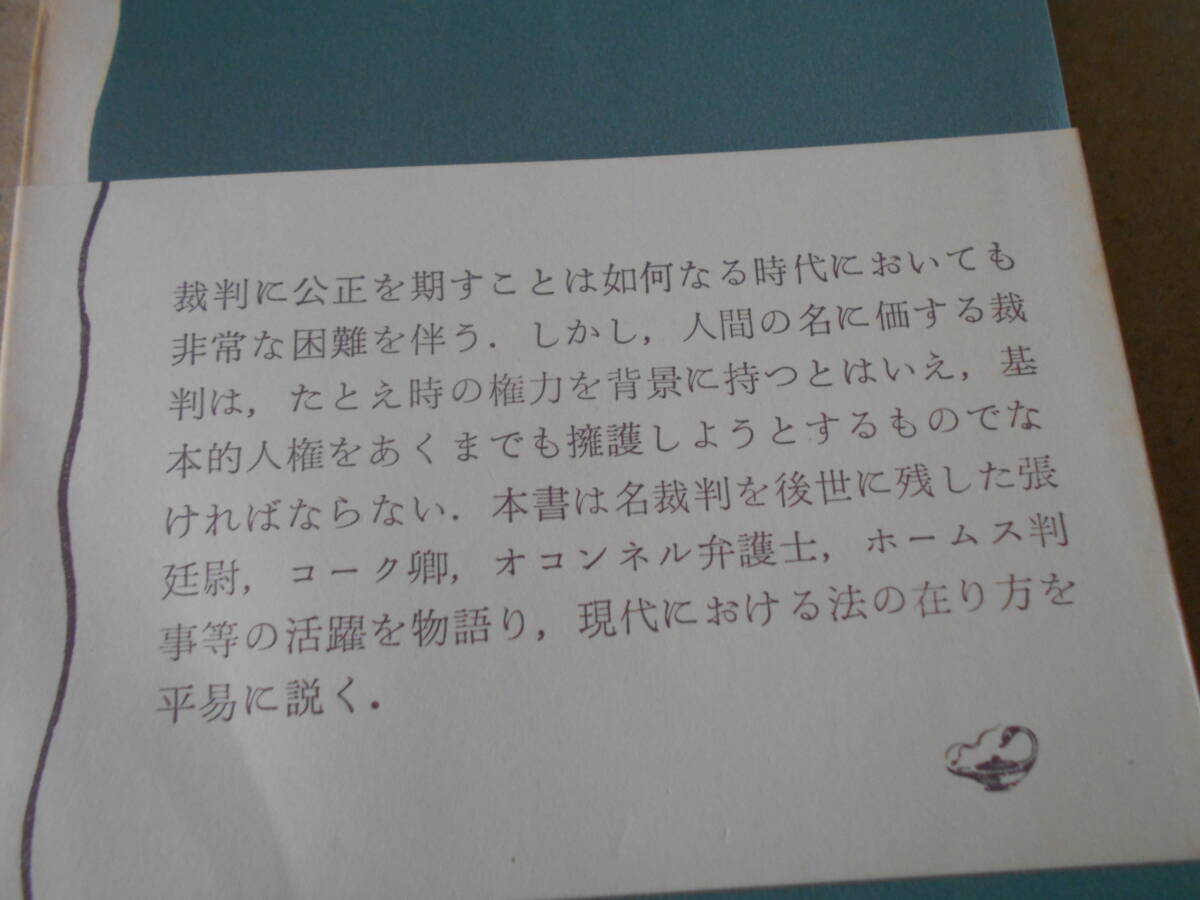 裁判に公正を期すことは如何なる時代においても
非常な困難を伴う．しかし，人間の名に価する裁
判は，たとえ時の権力を背景に持つとはいえ，基
本的人権をあくまでも擁護しようとするものでな
ければならない．本書は名裁判を後世に残した張
廷尉，コーク卿，オコンネル弁護士，ホームス判
事等の活躍を物語り，現代における法の在り方を
平易に説く．